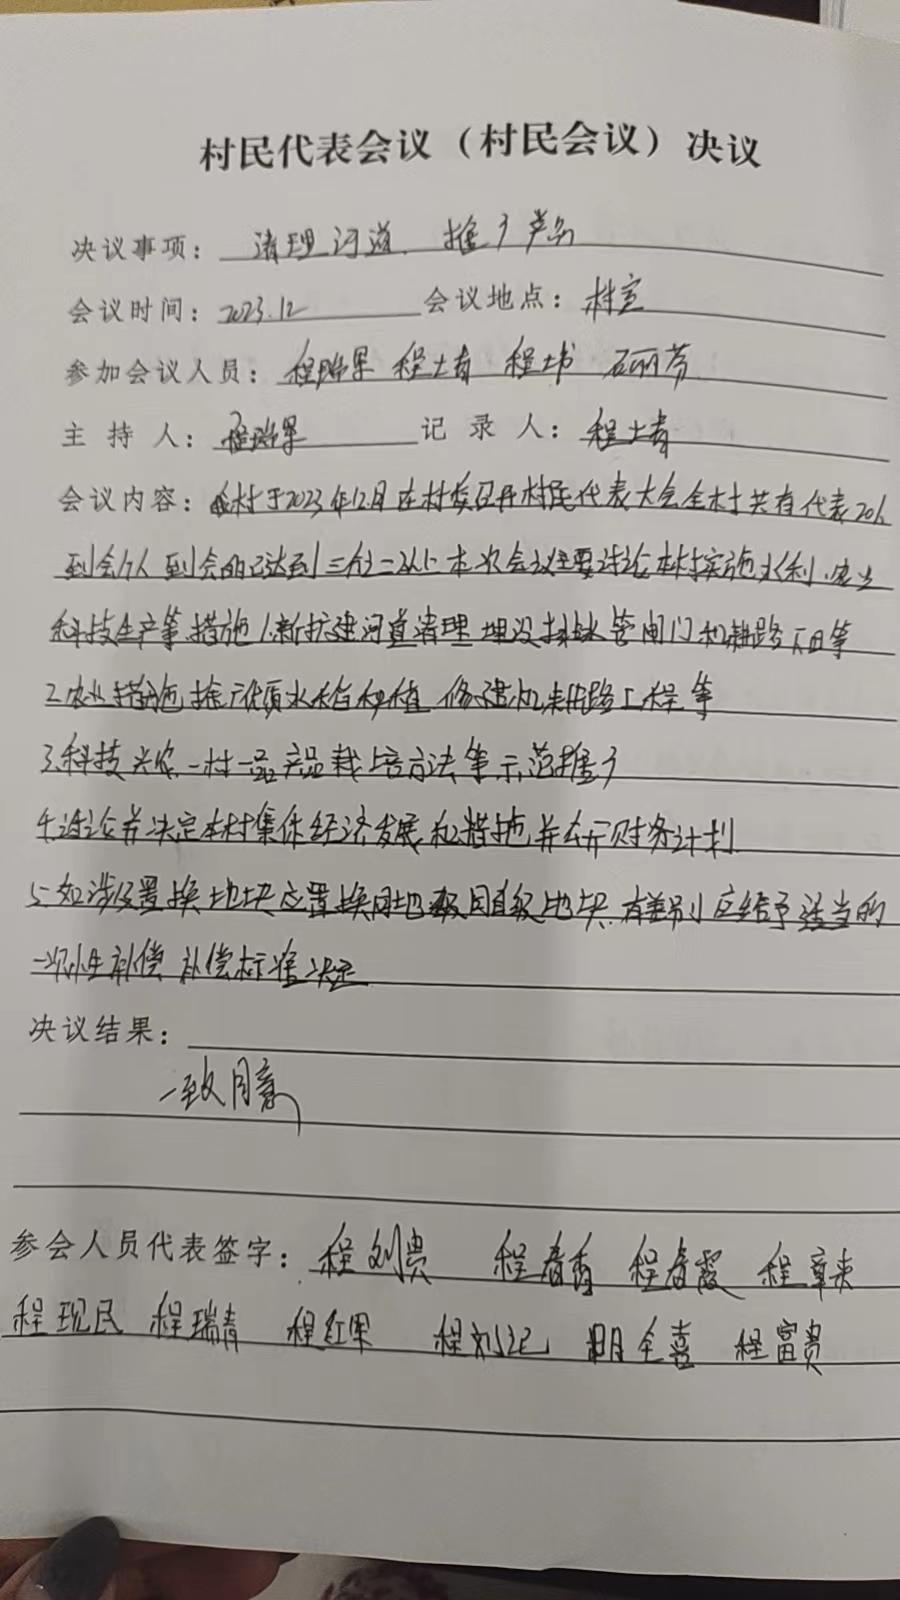 村民代表会议（村民会议）决议
决议事项：清理河道、推广
会议时间：2023.12 会议地点：村室
参加会议人员：程瑞果 程士青 程士书 石丽芬
主持人：程瑞果 记录人：程士青
会议内容：我村于2023年12月在村委召开村民代表大会全村共有代表20人
到会 人 到会的已达到三分之二以上本次会议主要讨论本村实施水利、农业
科技生产等措施1.新扩建河道清理 埋设排水管闸门和耕路 等
2.农业措施推广优质水稻种植 修建机耕路工程等
3.科技兴农、一村一品产品栽培方法等示范推广
4.讨论并决定本村集体经济发展和措施并公开财务计划
5.如涉及置换地块应置换同地 同等级地块、有差别应给予适当的
一次性补偿 补偿标准决定
决议结果：
一致同意
参会人员代表签字：程刘贵 程春香 程春霞 程章来
程现民 程瑞青 程红果 程刘记 明全喜 程富贵